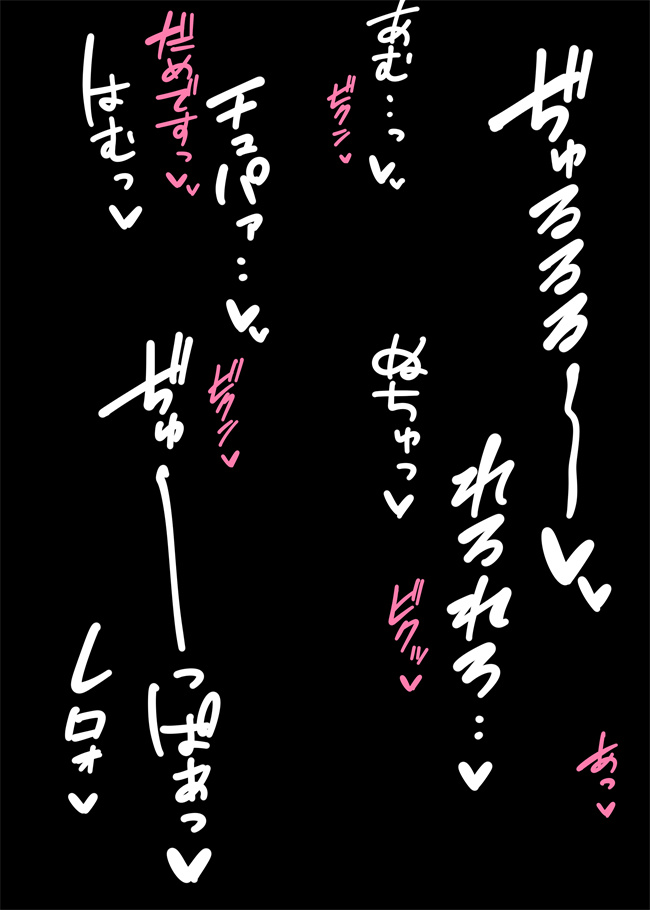 ぢゅるるる〜♥♥
あっ♥
れろれろ…♥
あむ…っ♥♥
ビクン♥
ぬちゅっ♥
ビクッ♥
チュパァ…♥♥
ビクン♥
だめですっ♥♥
はむっ♥
ぢゅーーっぽぉっ♥
レロォ♥